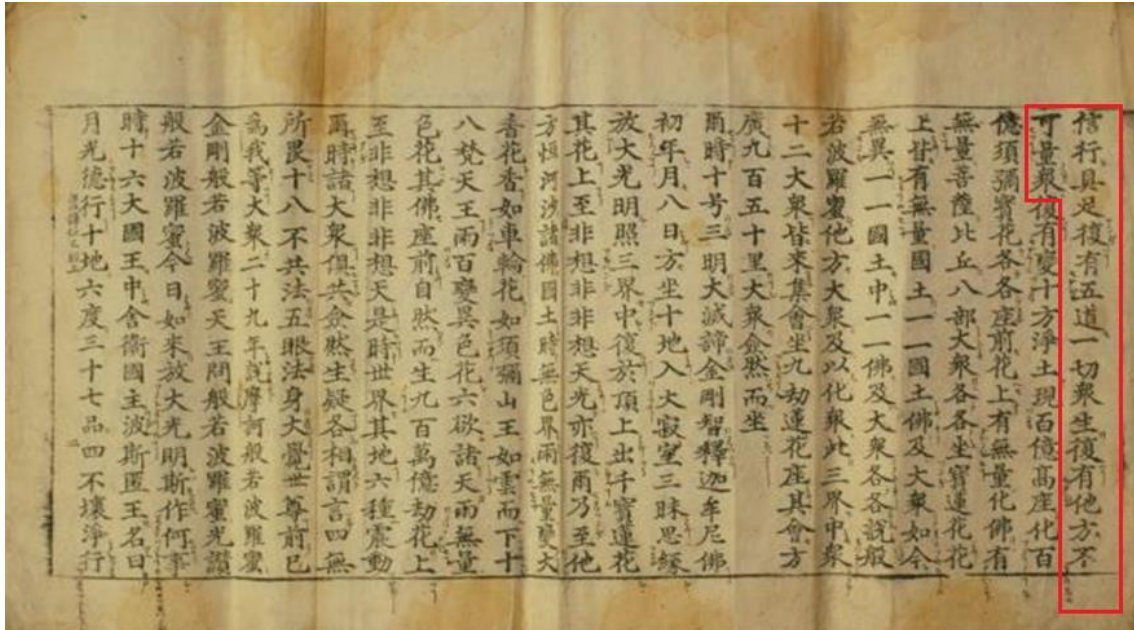 信行具足復有五道一切衆生復有他方不
可量衆復有變十方淨土現百億髙座化百
億須彌寶花各各座前花上有無量化佛有
無量菩薩比丘八部大衆各各坐寶蓮花花
上皆有無量國土一一國土佛及大衆如今
無異一一國土中一一佛及大衆各各說般
若波羅蜜他方大衆及以化衆此三界中衆
十二大衆皆來集會坐九劫蓮花座其會方
廣九百五十里大衆僉然而坐
爾時十号三明大滅諦金剛智釋迦牟尼佛
初年月八日方坐十地入大寂室三昧思縁
放大光明照三界中復於頂上出千寶蓮花
其花上至非想非非想天光亦復爾乃至他
方恒河沙諸佛國土時無色界雨無量變大
香花香如車輪花如須彌山王如雲而下十
八梵天王雨百變異色花六欲諸天雨無量
色花其佛座前自然而生九百萬億劫花上
至非想非非想天是時世界其地六種震動
爾時諸大衆俱共僉然生疑各相謂言四無
所畏十八不共法五眼法身大覺世尊前已
爲我等大衆二十九年說摩訶般若波羅蜜
金剛般若波羅蜜天王問般若波羅蜜光讃
般若波羅蜜今日如來放大光明斯作何事
時十六大國王中舍衛國主波斯匿王名曰
月光德行十地六度三十七品四不壞淨行